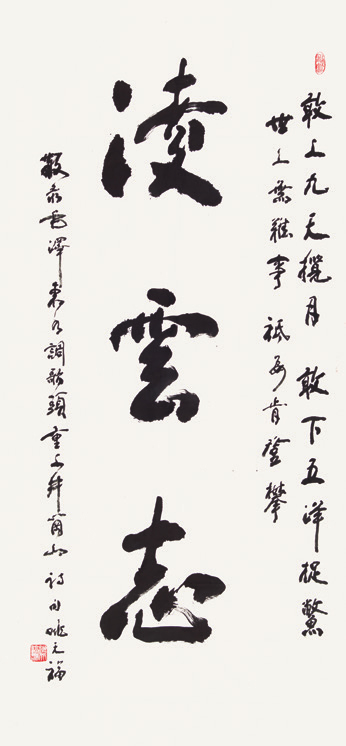 敢上九天攬月 敢下五洋捉鱉
世上無難事 祇要肯登攀
淩雲志
敬录毛澤東水調歌頭重上井崗山詩句姚元